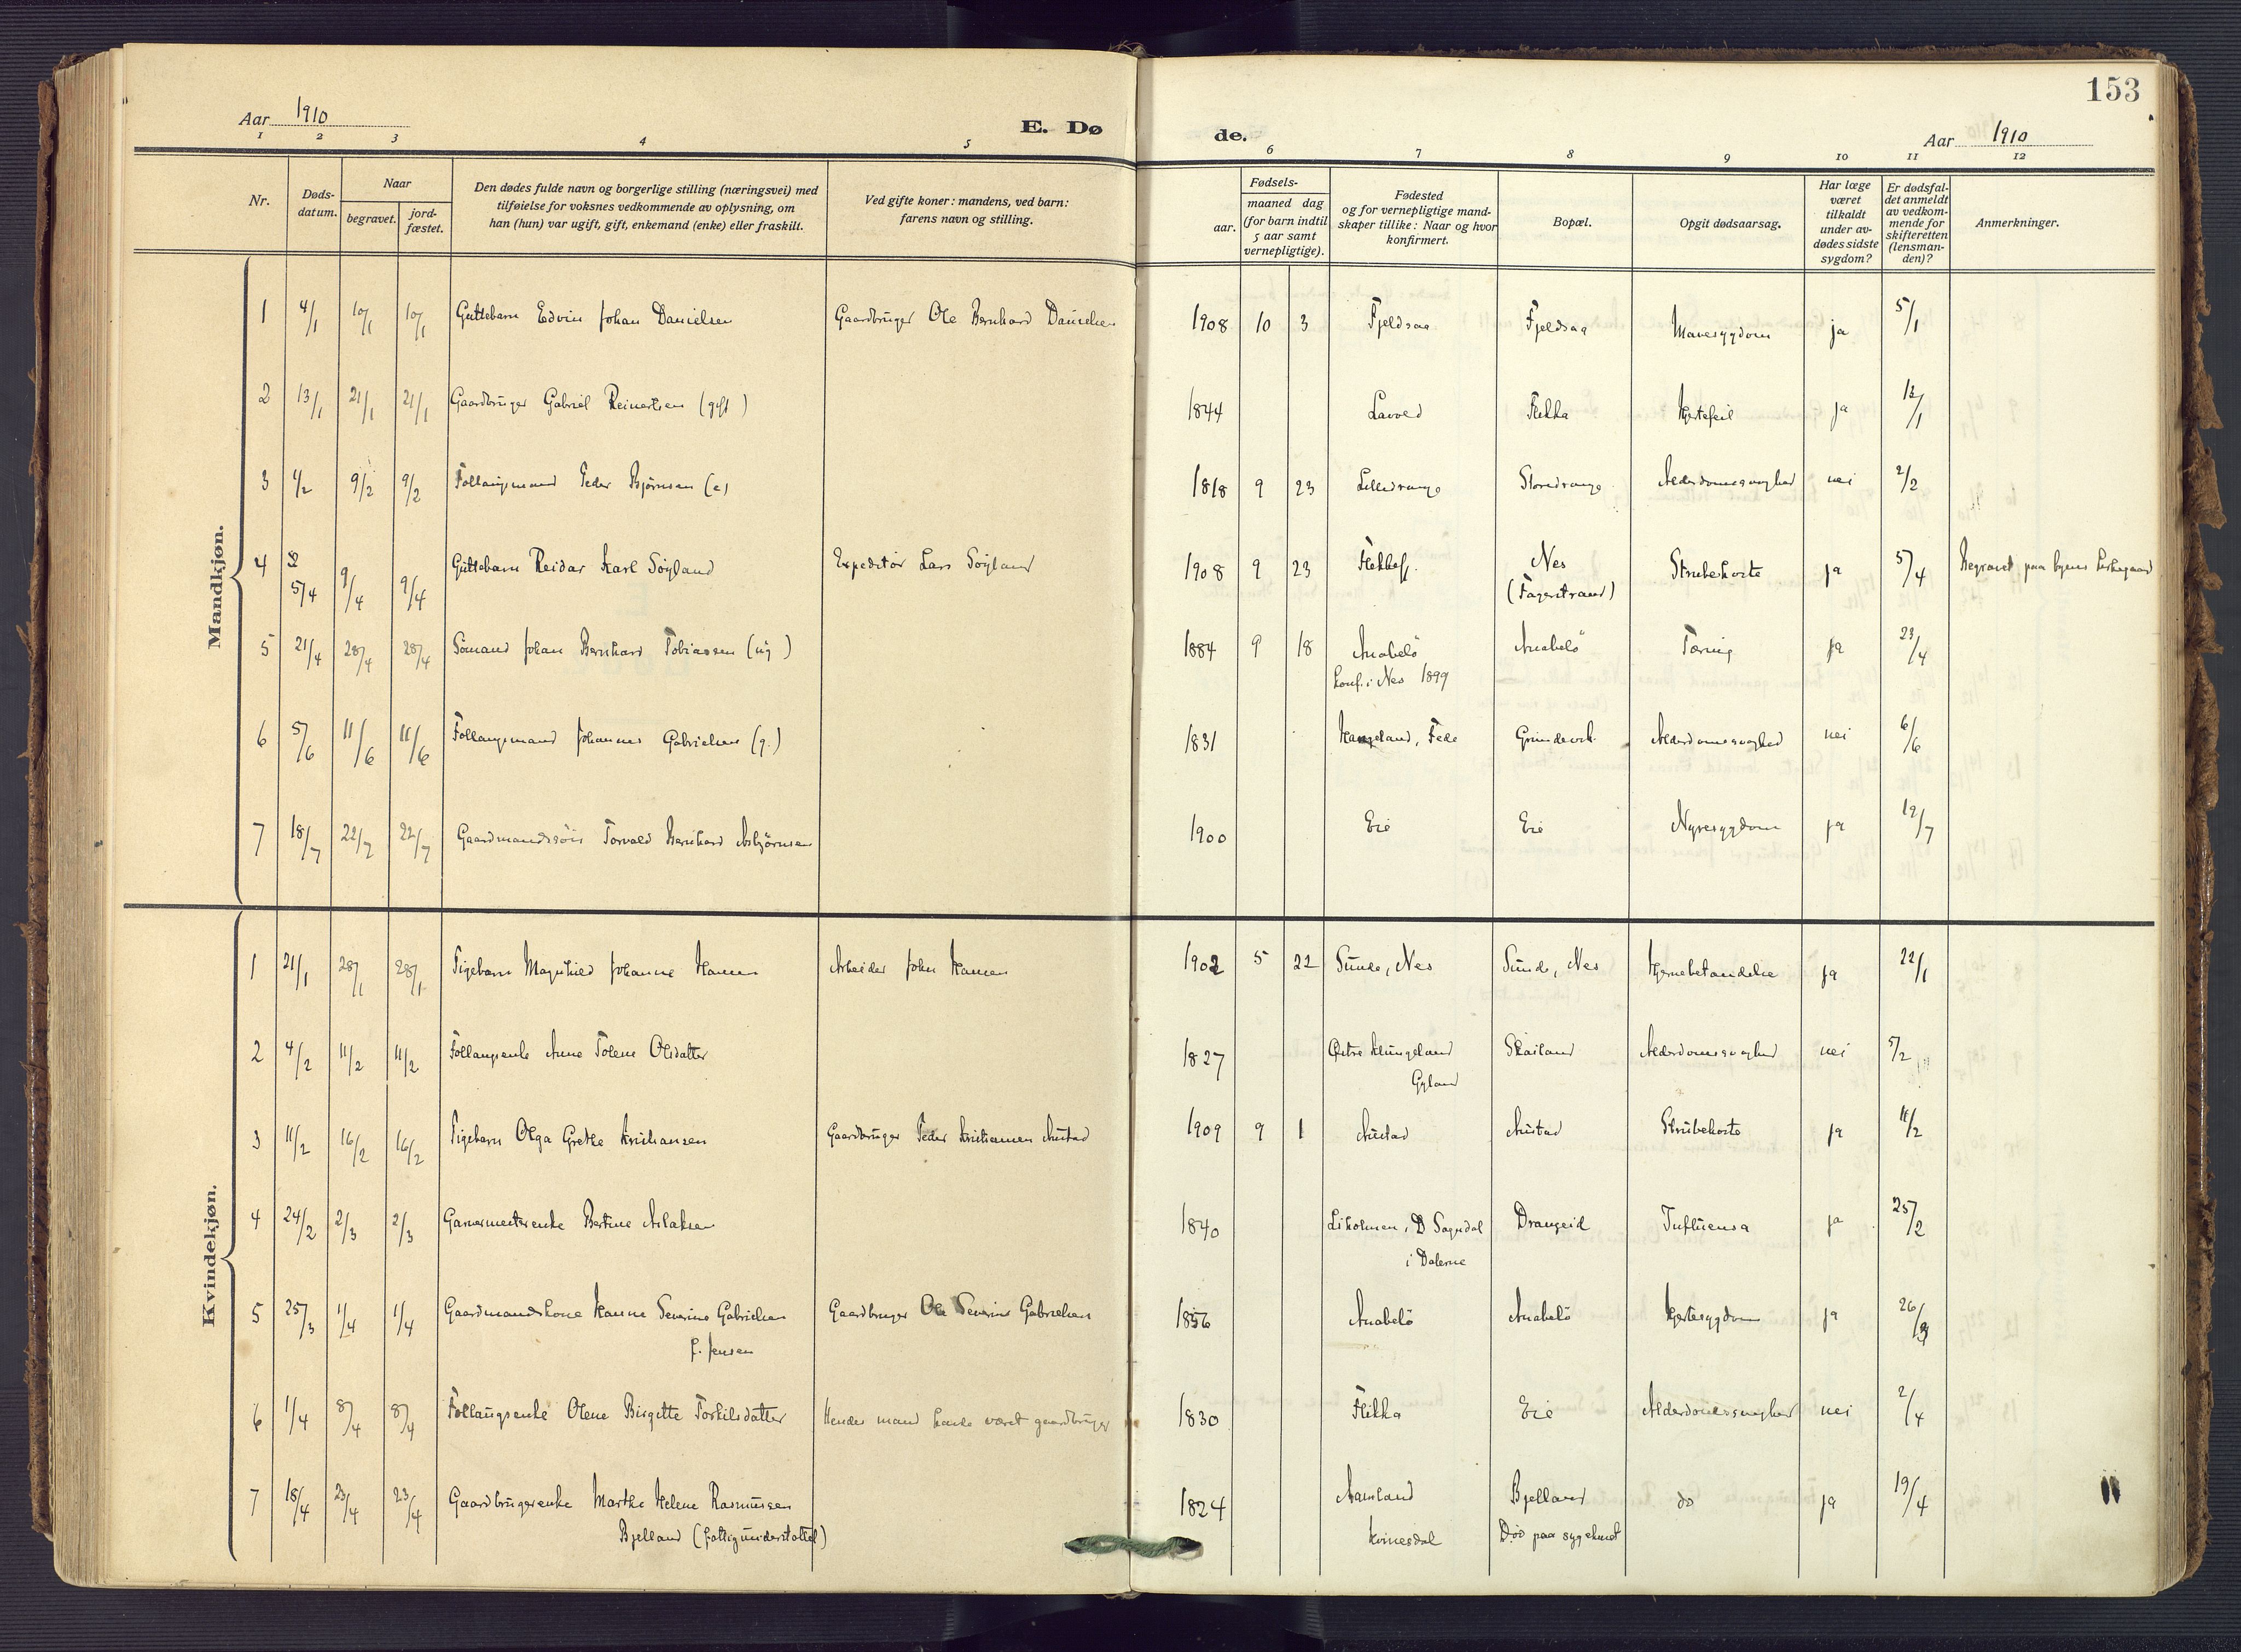 153
Aar 1910
E. Dø
de.
Aar 1910
1 2 3 4 5 6 7 8 9 10 11 12
Nr.
Døds-
datum.
Naar
begravet.
jord-
fæstet.
Den dødes fulde navn og borgerlige stilling (næringsvei) med
tilføielse for voksnes vedkommende av oplysning, om
han (hun) var ugift, gift, enkemand (enke) eller fraskilt.
Ved gifte koner: mandens, ved barn:
farens navn og stilling.
Fødsels-
aar.
maaned dag
(for barn indtil
5 aar samt
vernepligtige).
Fødested
og for vernepligtige mand-
skaper tillike: Naar og hvor
konfirmert.
Bopæl.
Opgit dødsaarsag.
Har læge
været
tilkaldt
under av-
dødes sidste
sygdom?
Er dødsfal-
det anmeldt
av vedkom-
mende for
skifteretten
(lensman-
den)?
Anmerkninger.
Mandkjøn.
1 4/1 10/1 10/1 Guttebarn Edvin Johan Danielsen Gaardbruger Ole Bernhard Danielsen 1908 10 3 Fjeldsaa Fjeldsaa Mavesygdom ja 5/1
2 13/1 21/1 21/1 Gaardbruger Gabriel Reinertsen (gift) 1844 Lavoed Flikka Hjertefeil ja 13/1
3 1/2 9/2 9/2 Follaugsmand Peder Bjørnsen (e) 1818 9 23 Lilledrange Storedrange Alderdomssvaghed nei 2/2
4 5/4 9/4 9/4 Guttebarn Reidar Karl Söyland Expeditör Lars Söyland 1908 9 23 Flekkefj. Nes
(Fagerstrand) Strubehoste ja 5/4 Begravet paa byens kirkegaard
5 21/4 28/4 28/4 Sömand Johan Bernhard Tobiassen (ug) 1884 9 18 Anabelö
konf. i Nes 1899 Anabelö Tæring ja 23/4
6 5/6 11/6 11/6 Follaugsmand Johannes Gabrielsen (g.) 1831 Haugeland, Fede Grindevik Alderdomssvaghed nei 6/6
7 18/7 22/7 22/7 Gaardmandssön Torvald Bernhard Asbjörnsen 1900 Eie Eie Nyresygdom ja 19/7
Kvindekjøn.
1 21/1 28/1 28/1 Pigebarn Magnhild Johanne Hansen Arbeider John Hansen 1902 5 22 Sunde, Nes Sunde, Nes Hjernebetændelse ja 22/1
2 4/2 11/2 11/2 Follaugsenke Anne Tolene Olsdatter 1827 Östre Klungeland
Gyland Skailand Alderdomssvaghed nei 5/2
3 11/2 16/2 16/2 Pigebarn Olga Grethe Kristiansen Gaardbruger Peder Kristiansen Austad 1909 9 1 Austad Austad Strubehoste ja 11/2
4 24/2 2/3 2/3 Garvermesterenke Bertine Aslaksen 1840 Liholmen, D Sogndal
i Dalerne Drangeid Influensa ja 25/2
5 25/3 1/4 1/4 Gaardmandskone Hanne Severine Gabrielsen
f. Jensen Gaardbruger Ole Severin Gabrielsen 1856 Anabelö Anabelö Hjertesygdom ja 26/3
6 1/4 8/4 8/4 Follaugsenke Olene Birgitte Torkildsdatter Hendes mand havde været gaardbruger 1830 Flikka Eie Alderdomssvaghed nei 2/4
7 18/4 23/4 23/4 Gaardbrugerenke Marthe Helene Rasmussen
Bjelland (fattigunderstøttet) 1824 Aamland
Kvinesdal Bjelland
Död paa sygehuset do ja 19/4